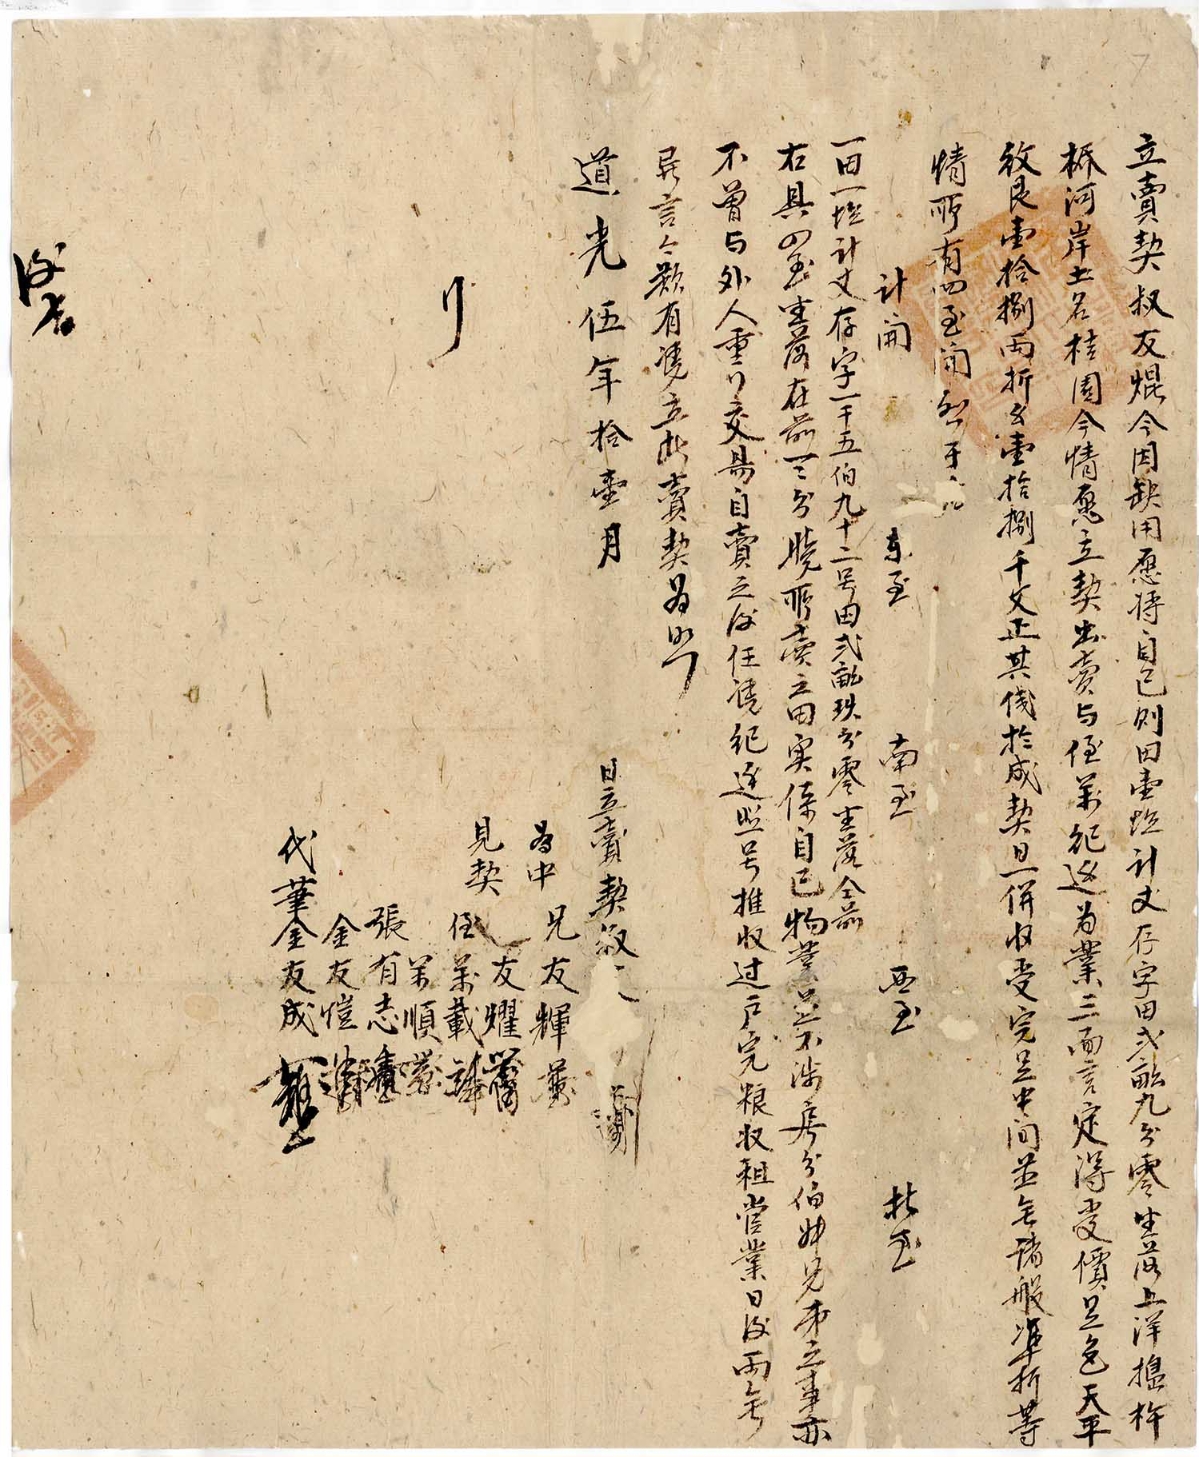 立賣契叔友焜今因缺用愿将自己则田壹坵计丈存字田弍畝九分零坐落上洋搗杵
桥河岸土名桂園今情愿立契出卖与侄萬紀边为業三面言定得受價足色天平
紋艮壹拾捌両折錢壹拾捌千文正其伐扵成契日一併收受完足中间並無諸般準折等
情所有四至開列于后
计開 東至 南至 西至 北至
一田一坵计丈存字一千五伯九十二号田弍畝玖分零坐落仝前
右具四至坐落在前一一分曉所卖之田实係自己物業並不涉房分伯叔兄弟之事亦
不曾与外人重行交易自賣之後任凭紀边照号推收过户完粮收租管業日後両無
異言今欲有凭立此賣契為照
道光伍年拾壹月 日立賣契叔
為中兄友輝
友燿
見契侄萬載
萬順
張有志
金友愷
代筆金友成